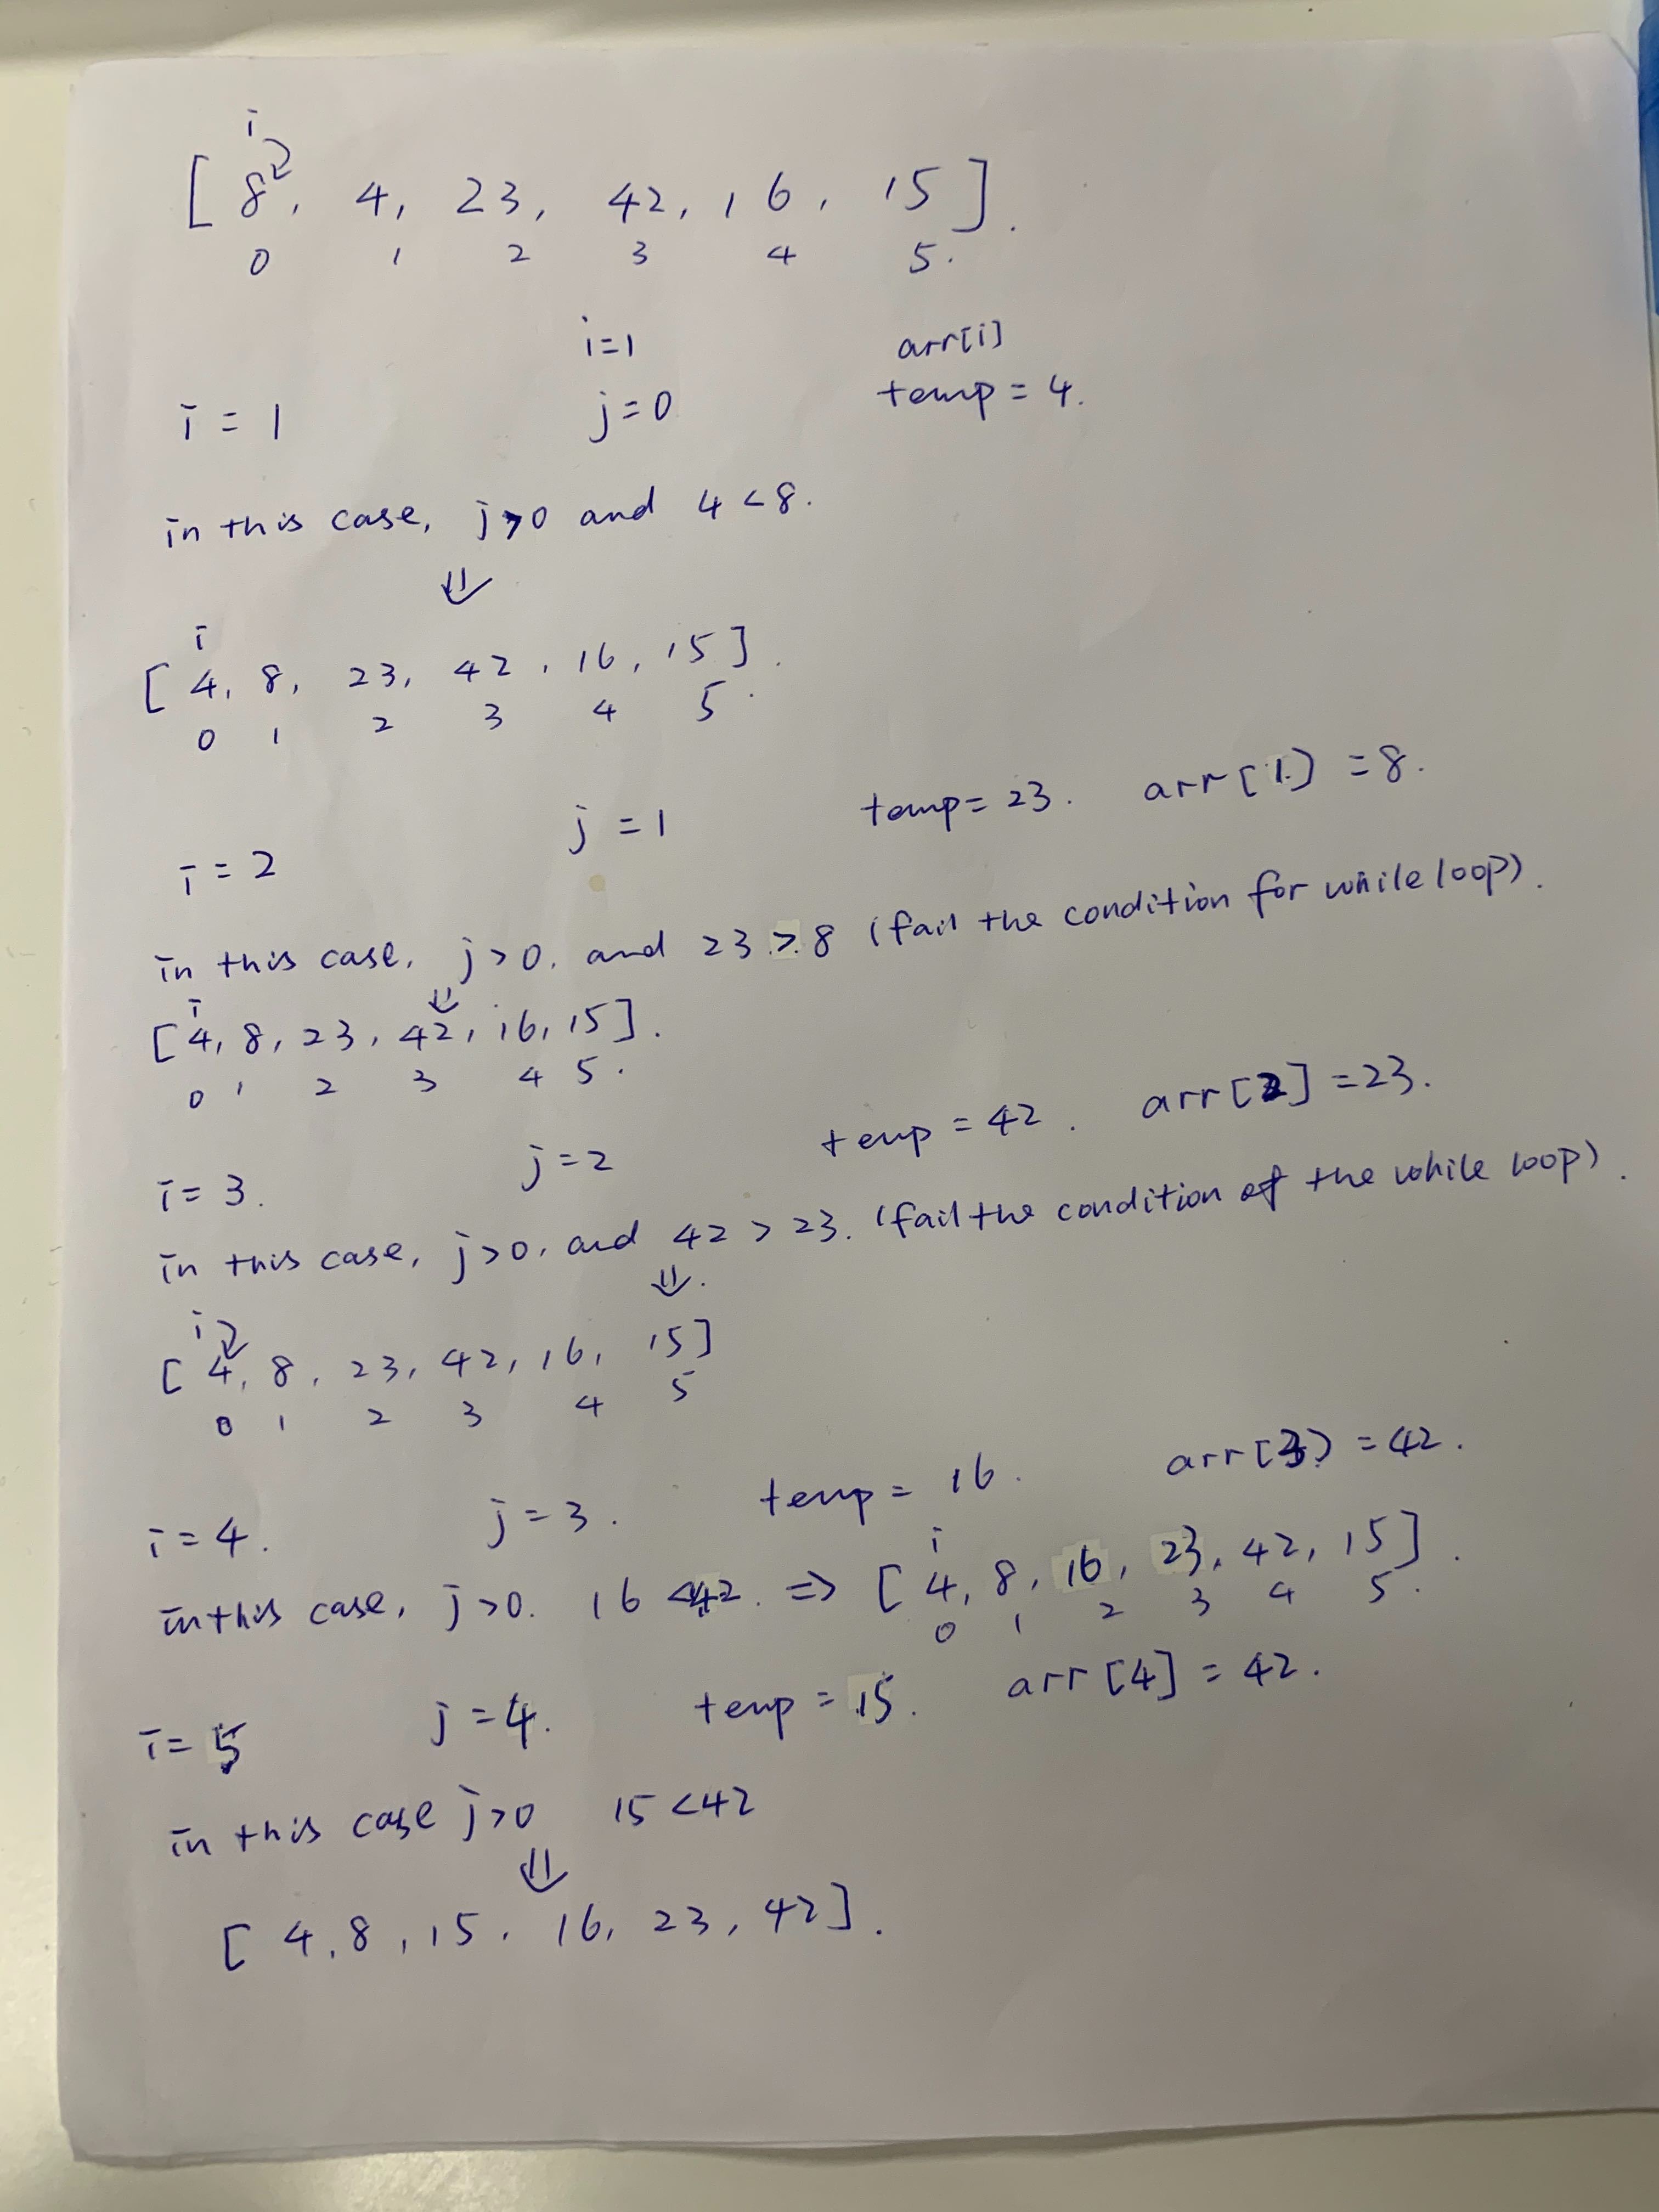 i
[ 8, 4, 23, 42, 16, 15 ].
0 1 2 3 4 5.
i=1 arr[i]
i = 1 j=0 temp = 4.
in this case, j>0 and 4 < 8.
⇓
i
[ 4, 8, 23, 42, 16, 15 ].
0 1 2 3 4 5.
i = 2 j = 1 temp = 23. arr[1] = 8.
in this case, j>0, and 23 > 8 (fail the condition for while loop).
⇓
i
[ 4, 8, 23, 42, 16, 15 ].
0 1 2 3 4 5.
i = 3. j = 2 temp = 42. arr[2] = 23.
in this case, j>0, and 42 > 23. (fail the condition of the while loop).
⇓.
i
[ 4, 8, 23, 42, 16, 15 ]
0 1 2 3 4 5
i = 4. j = 3. temp = 16. arr[3] = 42.
i
in this case, j>0. 16 < 42. ⇒ [ 4, 8, 16, 23, 42, 15 ].
0 1 2 3 4 5.
i = 5 j = 4. temp = 15. arr[4] = 42.
in this case j>0 15 < 42
⇓
[ 4, 8, 15, 16, 23, 42 ].